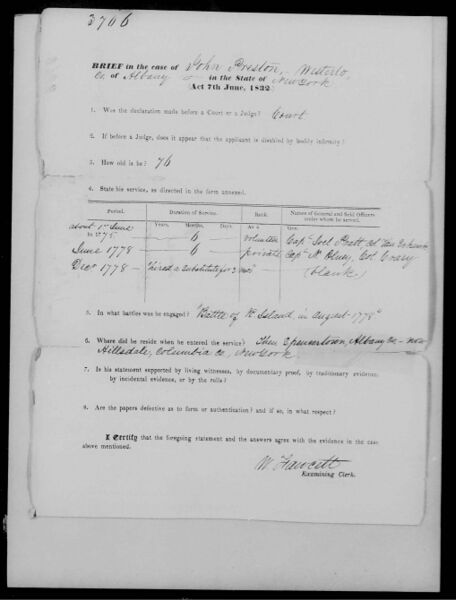 3706
BRIEF in the case of John Preston, Westerlo,
Co. of Albany in the State of New York
(Act 7th June, 1832)
1. Was the declaration made before a Court or a Judge? Court
2. If before a Judge, does it appear that the applicant is disabled by bodily infirmity?
3. How old is he? 76
4. State his service, as directed in the form annexed.
Period. Duration of Service. Rank. Names of General and Field Officers under whom he served.
Years. Months. Days. As a
about 1st June 6 volunteer Capt Joel Pratt Col Van
June 1778 — 6 private Capt N. Col
Decr 1778 — "hired a substitute for 3 mos" (blank)
5. In what battles was he engaged? "Battle of R Island in August 1778"
6. Where did he reside when he entered the service? Then Spencertown, Albany Co — now
Hillsdale, Columbia co, New York.
7. Is his statement supported by living witnesses, by documentary proof, by traditionary evidence,
by incidental evidence, or by the rolls?
8. Are the papers defective as to form or authentication? and if so, in what respect?
I Certify that the foregoing statement and the answers agree with the evidence in the case
above mentioned.
W. Fawcett
Examining Clerk.